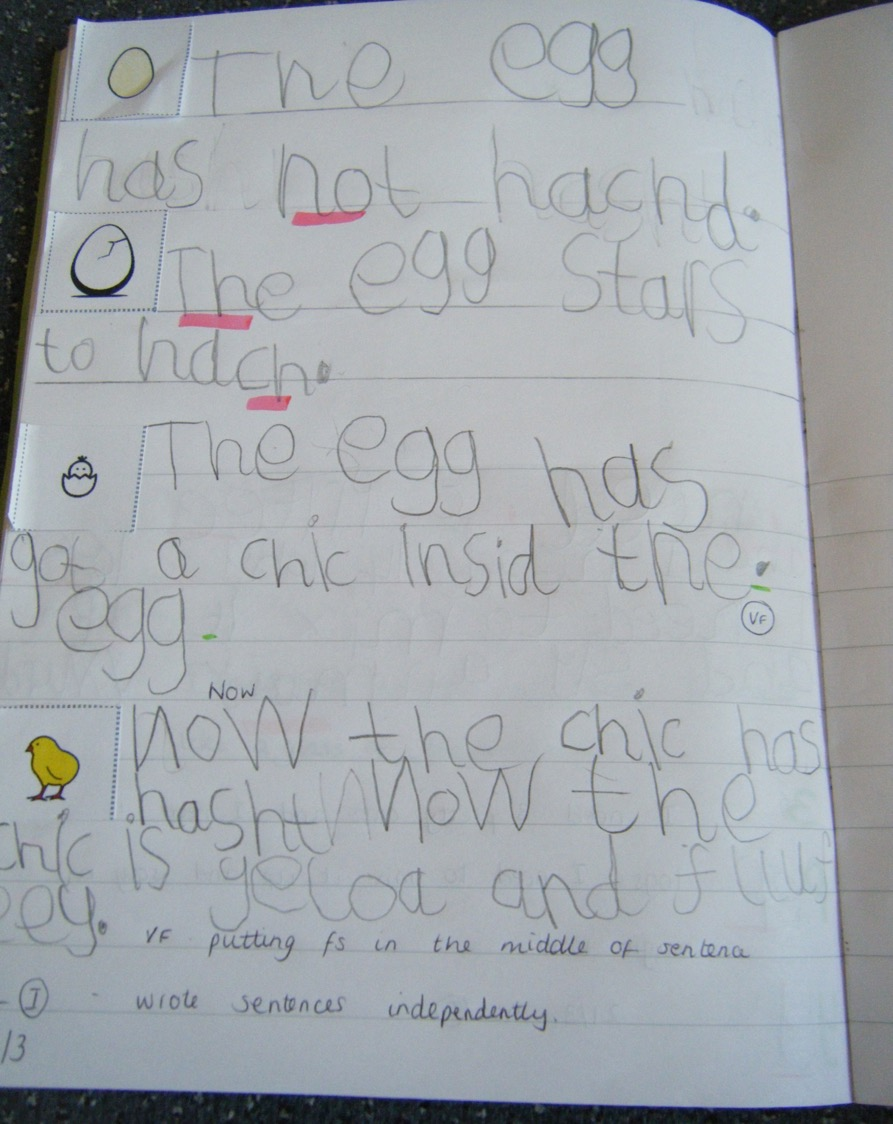 The egg
has not hachd.
The egg stars
to hach.
The egg has
got a chic insid the.
VF
egg.
Now
Now the chic has
hasht Now the
chic is yeloa and fluf
ey.
VF putting fs in the middle of sentence
- I - wrote sentences independently.
/3